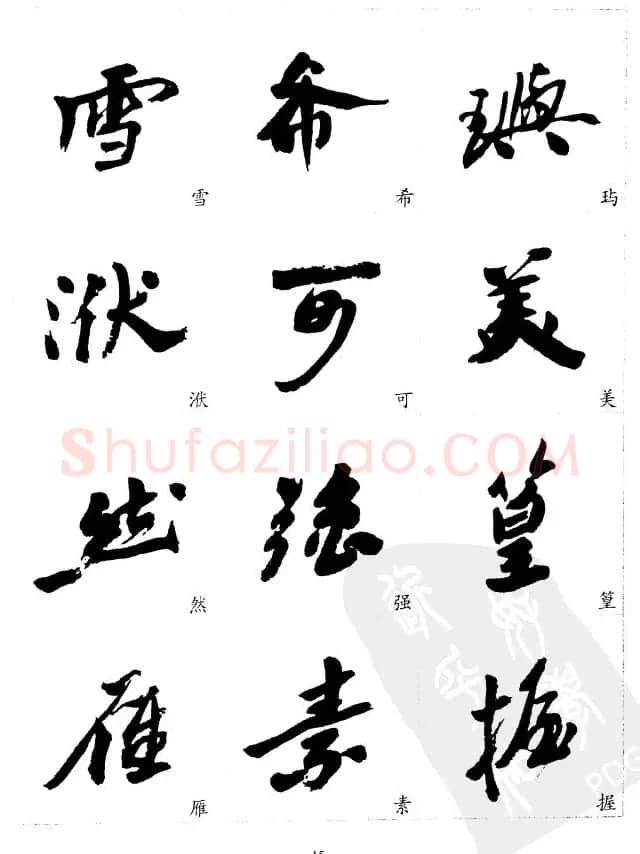 雪 希 璵
雪 希 玙
洑 可 美
洑 可 美
Shufaziliao.COM
然 强 篁
然 强 篁
雁 素 握
雁 素 握
PDG